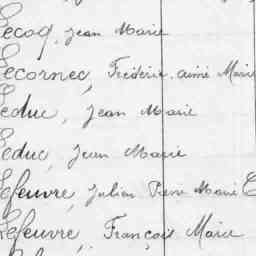 Lecoq, Jean Marie
Lecornec, Frédéric Aimé Marie
Leduc, Jean Marie
Leduc, Jean Marie
Lefeuvre, Julien Pierre Marie
Lefeuvre, François Marie